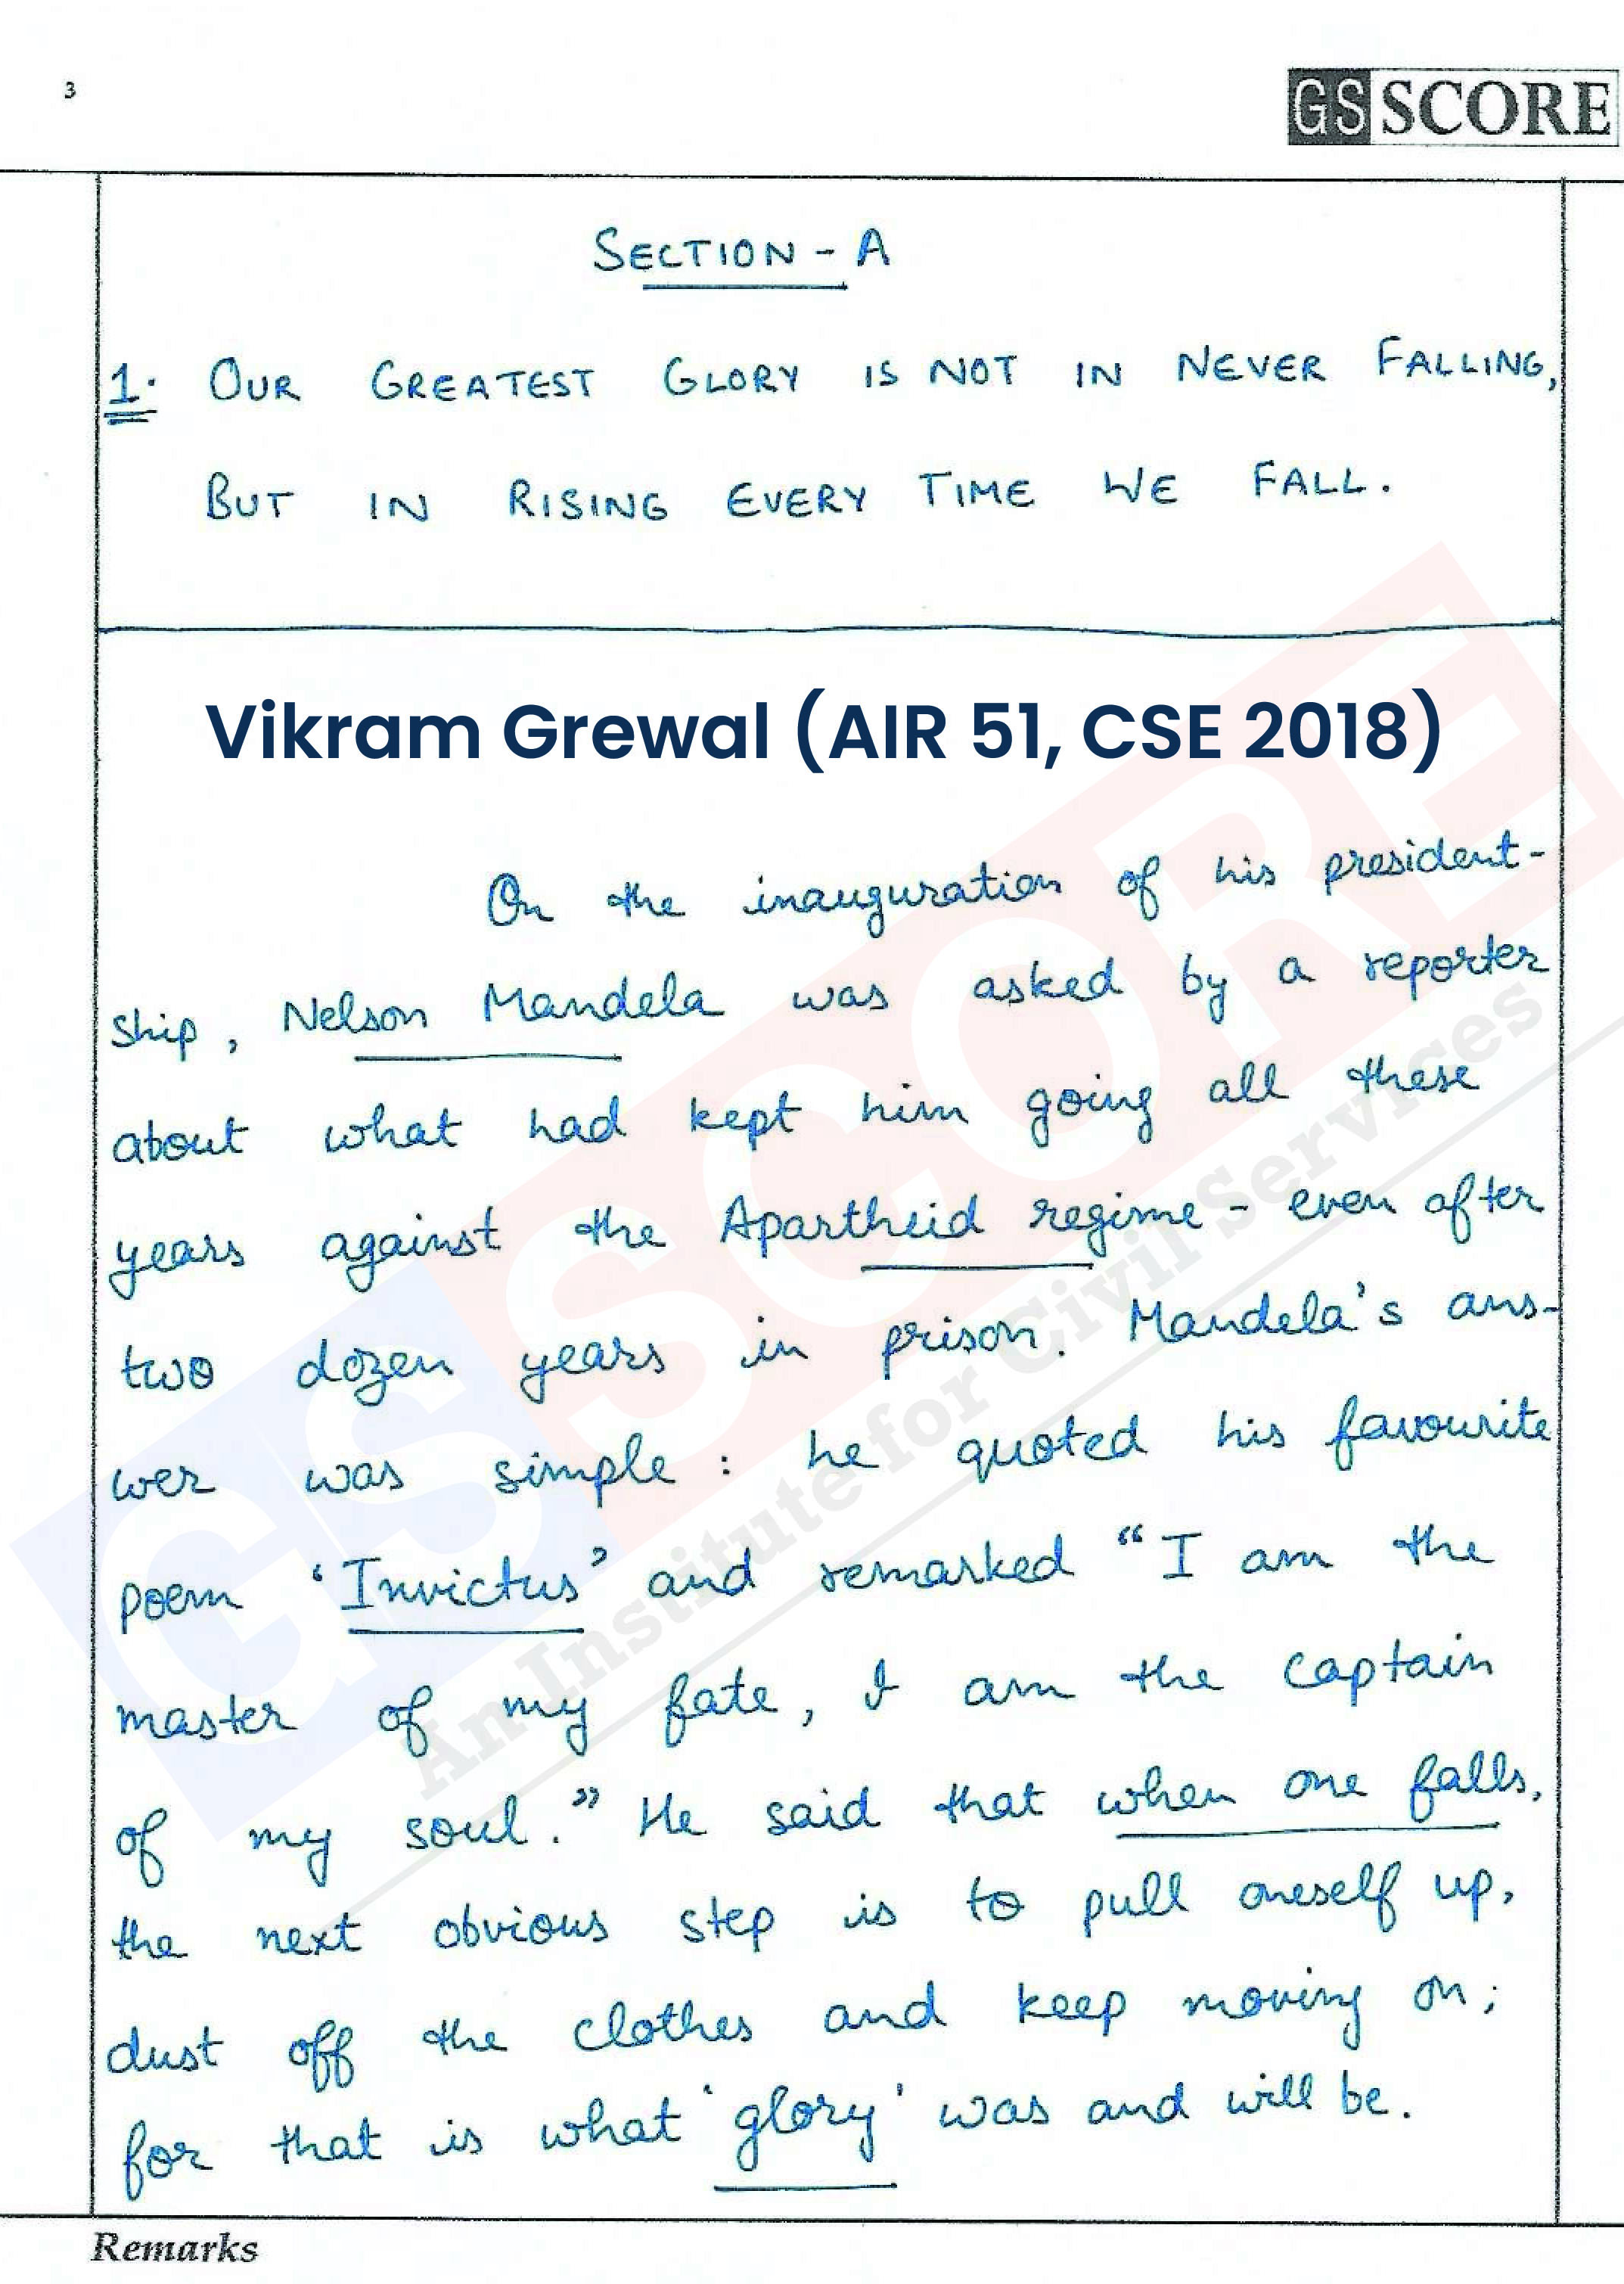 3
GS SCORE
SECTION - A
1. OUR GREATEST GLORY IS NOT IN NEVER FALLING,
BUT IN RISING EVERY TIME WE FALL.
Vikram Grewal (AIR 51, CSE 2018)
On the inauguration of his president-
ship, Nelson Mandela was asked by a reporter
about what had kept him going all these
years against the Apartheid regime - even after
two dozen years in prison. Mandela's ans-
wer was simple : he quoted his favourite
poem 'Invictus' and remarked "I am the
master of my fate, I am the captain
of my soul." He said that when one falls,
the next obvious step is to pull oneself up,
dust off the clothes and keep moving on;
for that is what 'glory' was and will be.
GS SCORE
An Institute for Civil Services
Remarks